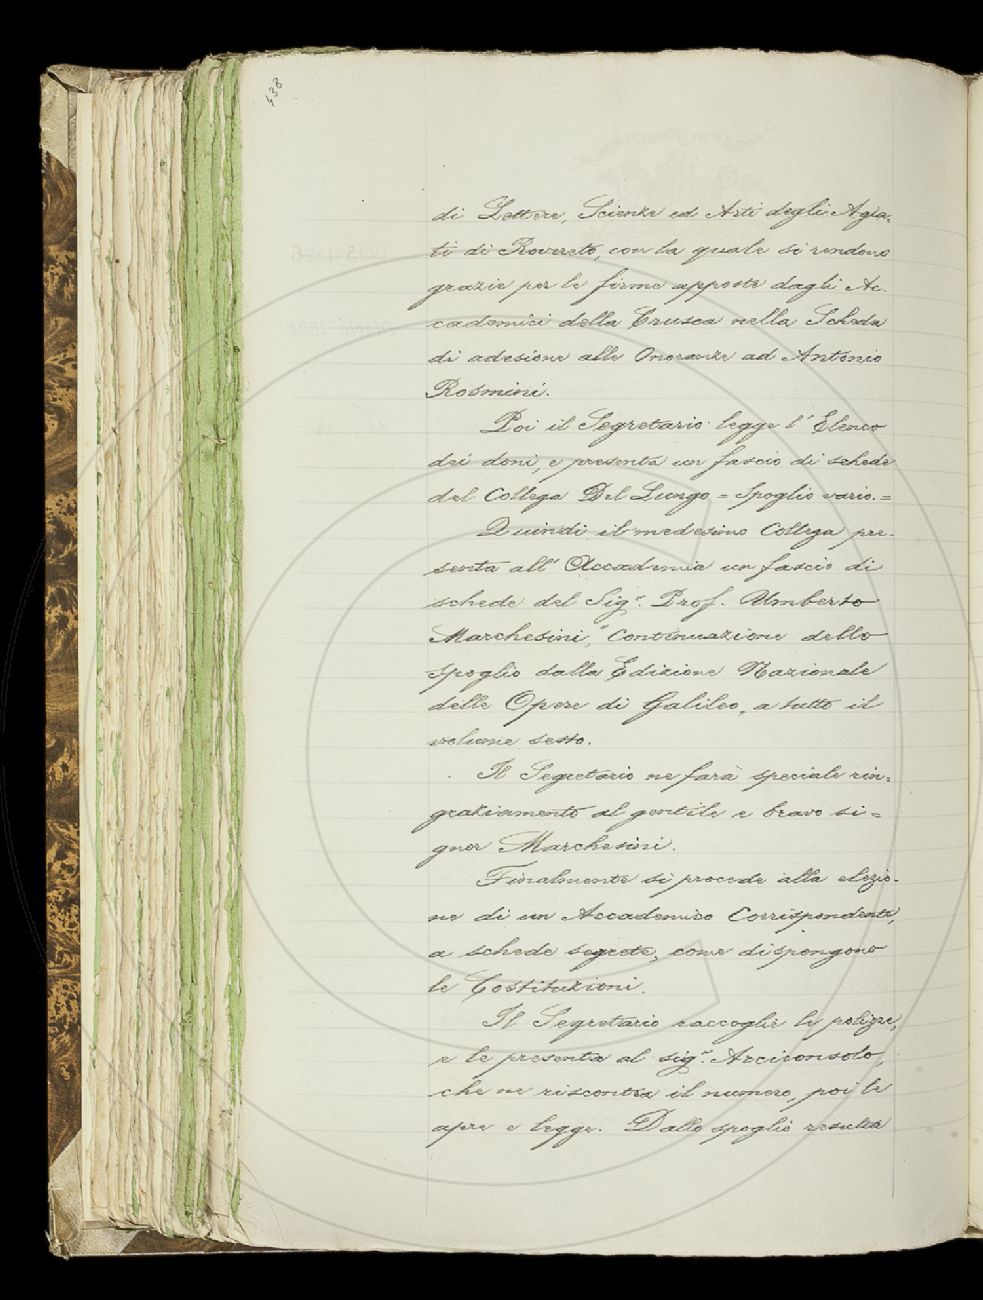 438
di Lettere, Scienze ed Arti degli Agia-
ti di Rovereto, con la quale si rendono
grazie per le firme apposte dagli Ac-
cademici della Crusca nella Scheda
di adesione alle Onoranze ad Antonio
Rosmini.
Poi il Segretario legge l'Elenco
dei doni, e presenta un fascio di schede
del Collega Del Lungo = Spoglio vario. =
Quindi il medesimo Collega pre-
senta all'Accademia un fascio di
schede del Sigr. Prof. Umberto
Marchesini, "Continuazione dello
spoglio dalla Edizione Nazionale
delle Opere di Galileo, a tutto il
volume sesto.
Il Segretario ne farà speciale rin-
graziamento al gentile e bravo si=
gnor Marchesini.
Finalmente si procede alla elezio-
ne di un Accademico Corrispondente,
a schede segrete, come dispongono
le Costituzioni.
Il Segretario raccoglie le polizze,
e le presenta al sigr. Arciconsolo,
che ne riscontra il numero, poi le
apre e legge. Dallo spoglio resulta